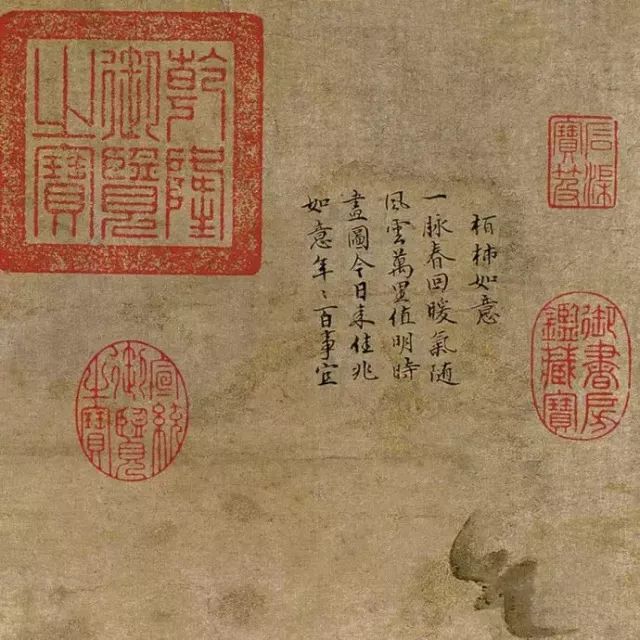 石渠
寶笈
御書房
鑑藏寶
栢柿如意
一脉春回暖氣隨
風雲萬里值明時
畫圖今日来佳兆
如意年〻百事宜
乾隆
御覽
之寶
宣統
御覽
之寶